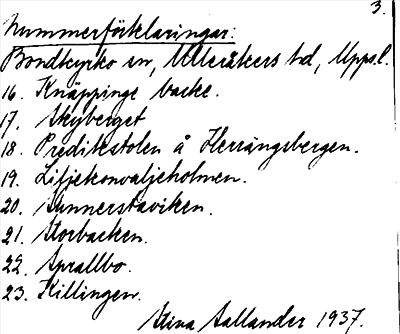 3.
Nummerförklaringar:
Bondkyrko sn, Ulleråkers hd, Upps.l.
16. Knäppinge backe.
17. Skyberget
18. Predikstolen å Herrängsbergen.
19. Liljekonvaljeholmen.
20. Sunnerstaviken.
21. Storbacken.
22. Sprallbo.
23. Killingen.
Stina Sallander 1937.